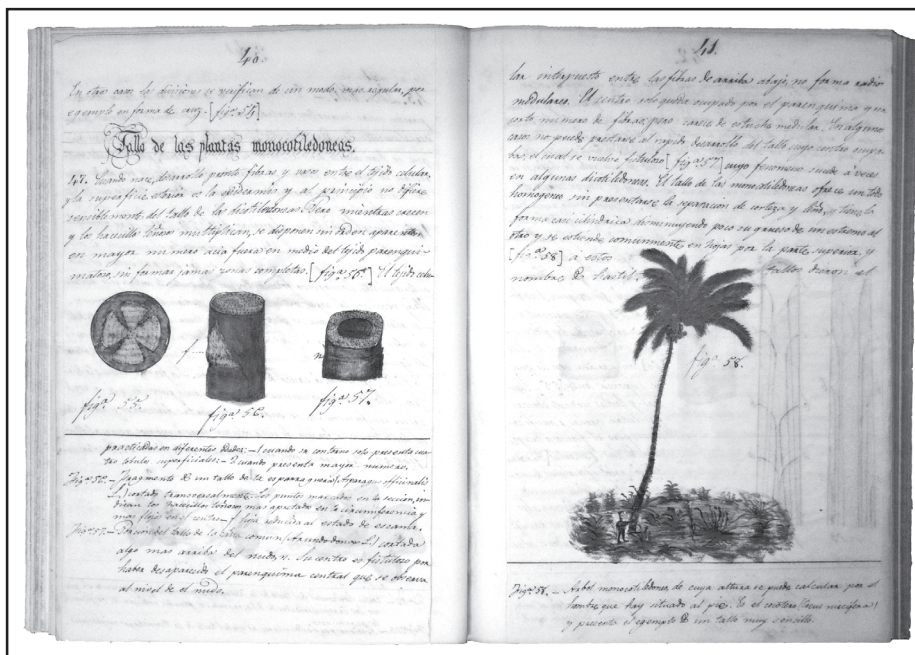 40.
En otros casos las divisiones se verifican de un modo mas regular, por
ejemplo en forma de cruz. [figª 54]
Tallo de las plantas monocotiledoneas.
47. Cuando nace, desarrolla pronto fibras y vasos entre el tejido celular,
y la superficie exterior es la epidermis y al principio no difiere
sensiblemente del tallo de las dicotiledoneas. Pero mientras crecen
y los hacecillos leñosos multiplican, se disponen sin orden aparente,
en mayor numero acia fuera en medio del tejido parenqui-
matoso, sin formar jamas zonas completas. [figª 56.] El tejido celu-
f....
n
figª 55.
figª 56.
figª 57.
practicadas en diferentes edades: — 1 cuando su contorno solo presenta cua-
tro lobulos superficiales: — 2 cuando presenta mayor numero.
Figª 56. — Fragmento de un tallo de la esparraguera (Asparagus officinalis
L.) cortado transversalmente. Los puntos marcados en la seccion, in-
dican los hacecillos leñosos mas apretados en la circunferencia y
mas flojos en el centro — f hoja reducida al estado de escama.
Figª 57. — Porcion del tallo de la caña comun (Arundo donax L.) cortada
algo mas arriba del nudo, n. Su centro es fistuloso por
haber desaparecido el parenquima central que se observa
al nivel de el nudo.
41.
lar interpuesto entre las fibras de arriba abajo, no forma radios
medulares. El centro solo queda ocupado por el parenquima y un
corto numero de fibras, pero carece de estuche medular. En algunos
casos no puede prestarse al rapido desarrollo del tallo cuyo centro ocupa-
ba, el cual se vuelve fistuloso [figª 57] cuyo fenomeno sucede a veces
en algunas dicotiledoneas. El tallo de las monocotiledoneas ofrece un todo
homogeneo sin presentarse la separacion de corteza y leño, y tiene la
forma casi cilindrica disminuyendo poco su grueso de un estremo al
otro y se estiende comunmente en hojas por la parte superior, y
[figª 58] a estos tallos dieron el
nombre de hastil.
figª 58.
Figª 58. — Arbol monocotiledoneo, de cuya altura se puede calcular por el
hombre que hay situado al pie. Es el cocotero (Cocus nucifera)
y presenta el ejemplo de un tallo muy sencillo.